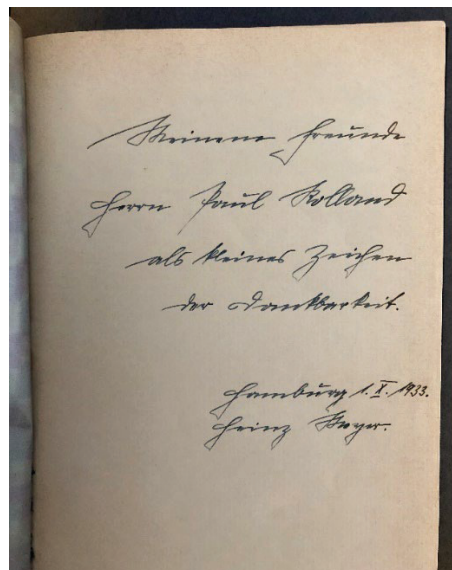 Meinem Freunde
Herrn Paul Rolland
als kleines Zeichen
der Dankbarkeit.
Hamburg 1. X. 1933.
Heinz Meyer.